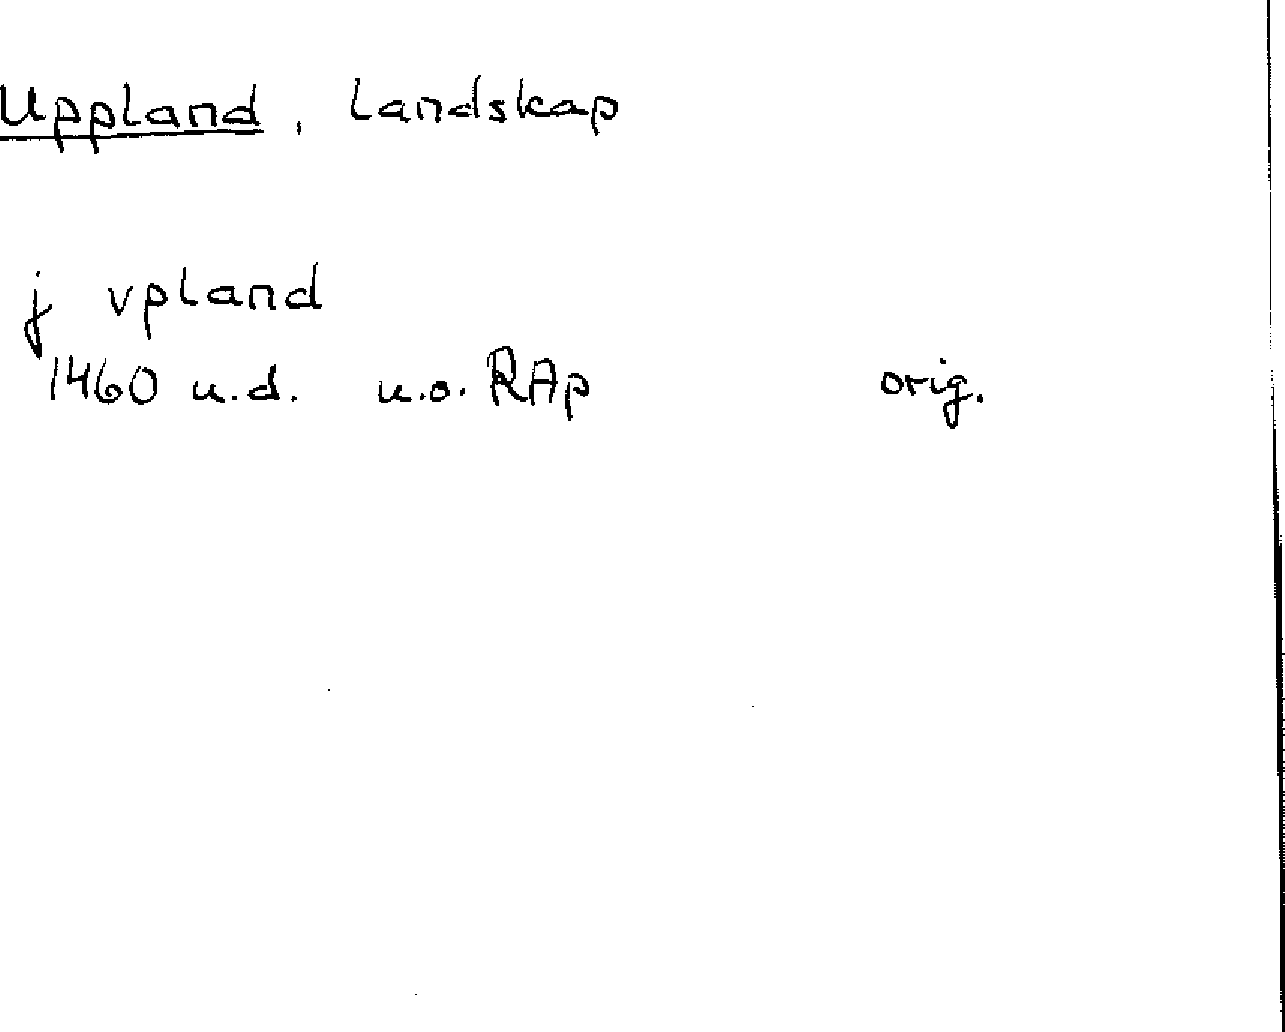 Uppland, landskap
j vpland
1460 u.d. u.o. RAp orig.